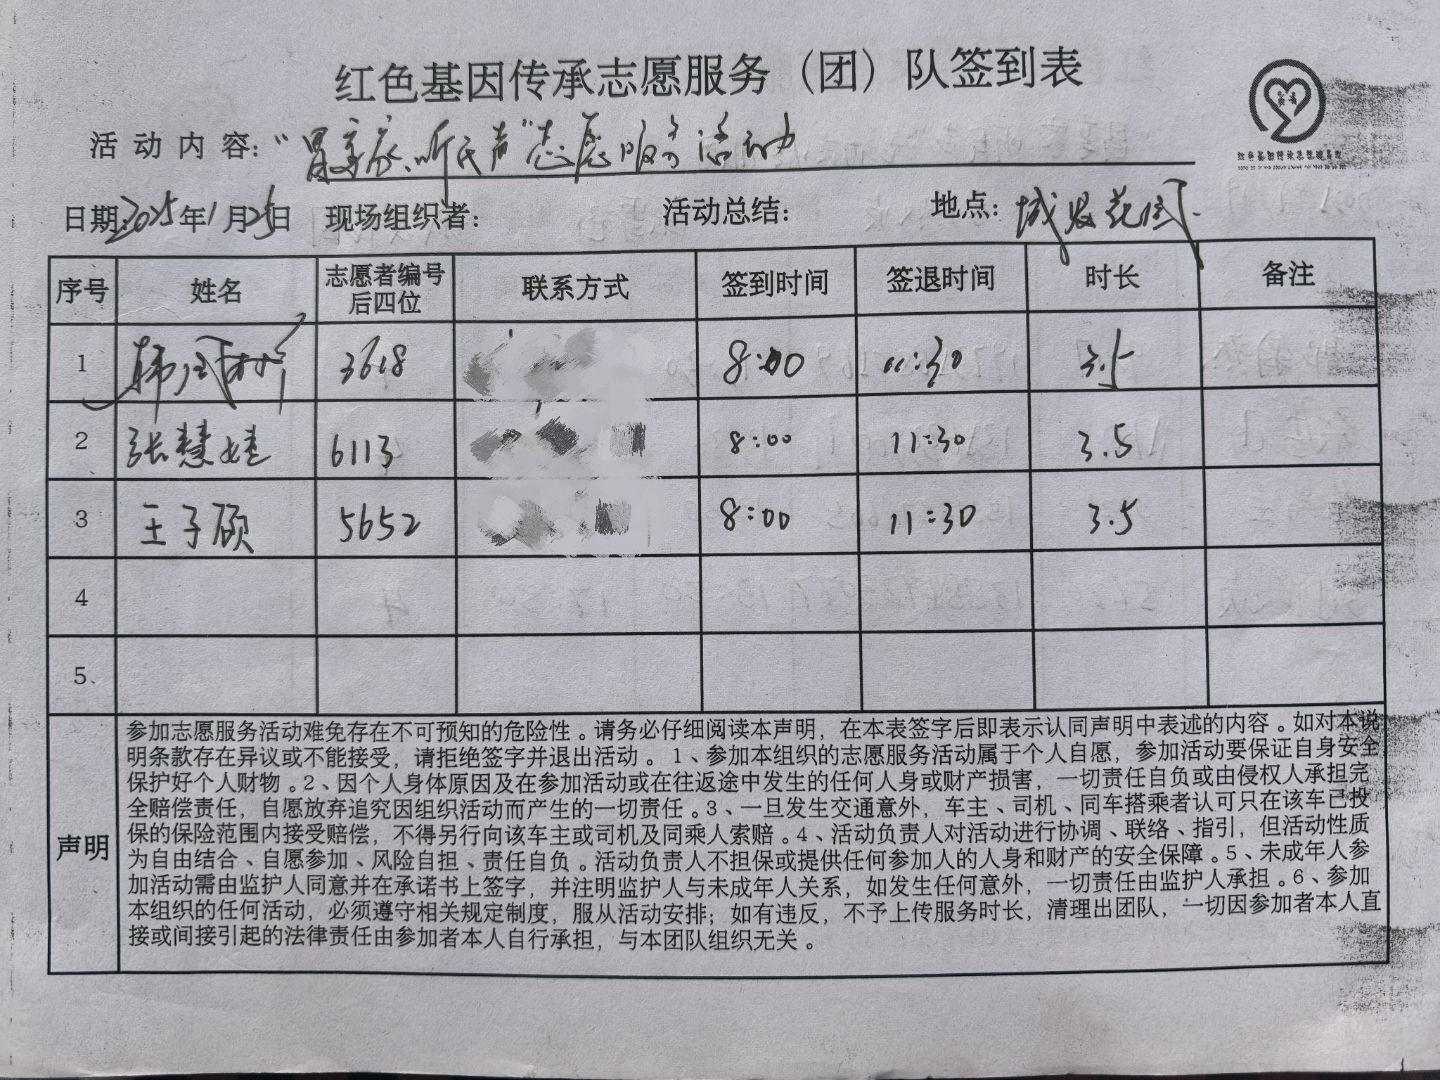 红色基因传承志愿服务（团）队签到表
活动内容：“ 听民声”志愿服务活动
日期：2025年1月25日 现场组织者： 活动总结： 地点：城发花园
序号 姓名 志愿者编号后四位 联系方式 签到时间 签退时间 时长 备注
1 韩 3618 8:00 11:30 3.5
2 张慧婕 6113 8:00 11:30 3.5
3 王子硕 5652 8:00 11:30 3.5
4
5、
声明
参加志愿服务活动难免存在不可预知的危险性。请务必仔细阅读本声明，在本表签字后即表示认同声明中表述的内容。如对本说
明条款存在异议或不能接受，请拒绝签字并退出活动。1、参加本组织的志愿服务活动属于个人自愿，参加活动要保证自身安全
保护好个人财物。2、因个人身体原因及在参加活动或在往返途中发生的任何人身或财产损害，一切责任自负或由侵权人承担完
全赔偿责任，自愿放弃追究因组织活动而产生的一切责任。3、一旦发生交通意外，车主、司机、同车搭乘者认可只在该车已投
保的保险范围内接受赔偿，不得另行向该车主或司机及同乘人索赔。4、活动负责人对活动进行协调、联络、指引，但活动性质
为自由结合、自愿参加、风险自担、责任自负。活动负责人不担保或提供任何参加人的人身和财产的安全保障。5、未成年人参
加活动需由监护人同意并在承诺书上签字，并注明监护人与未成年人关系，如发生任何意外，一切责任由监护人承担。6、参加
本组织的任何活动，必须遵守相关规定制度，服从活动安排；如有违反，不予上传服务时长，清理出团队，一切因参加者本人直
接或间接引起的法律责任由参加者本人自行承担，与本团队组织无关。